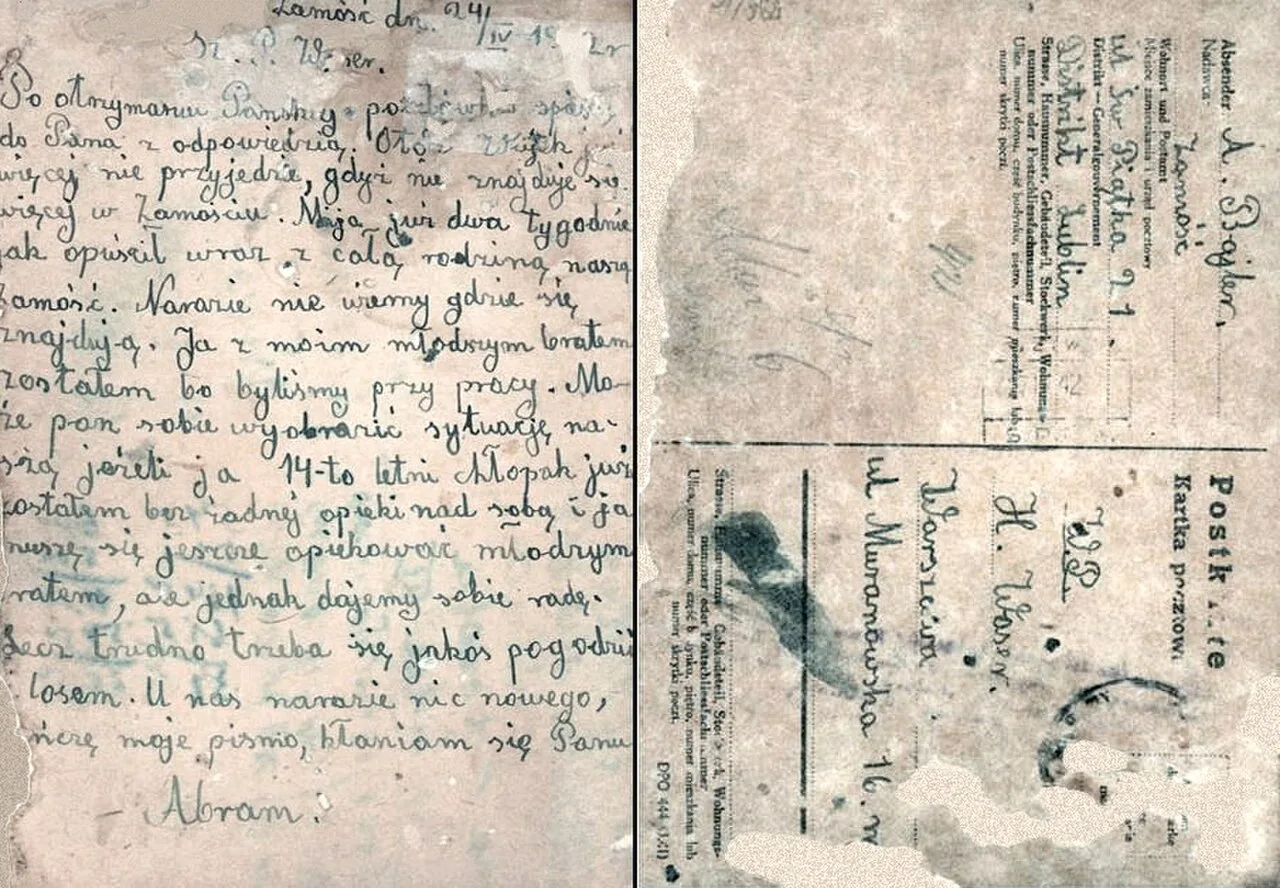 Zamość dn. 24/IV 19 2r
Sz. P. Waser.
Po otrzymaniu Pańskiej pocztówki śpieszę
do Pana z odpowiedzią. Otóż już
więcej nie przyjedzie, gdyż nie znajduje się
więcej w Zamościu. Mija już dwa tygodnie
jak opuścił wraz z całą rodziną naszą
Zamość. Narazie nie wiemy gdzie się
znajdują. Ja z moim młodszym bratem
zostałem bo byliśmy przy pracy. Mo-
że pan sobie wyobrazić sytuację na-
szą jeżeli ja 14-to letni chłopak już
zostałem bez żadnej opieki nad sobą i ja
muszę się jeszcze opiekować młodszym
bratem, ale jednak dajemy sobie radę.
Lecz trudno trzeba się jakoś pogodzić
losem. U nas narazie nic nowego,
kończę moje pismo, kłaniam się Panu
- Abram.
Absender: A. Bajler.
Nadawca:
Zamość
Wohnort und Postamt
Miejsce zamieszkania i urząd pocztowy
ul Św Piątka 21.
Distrikt — Generalgouvernement
Distrikt Lublin
Strasse, Hausnummer, Gebäudeteil, Stockwerk, Wohnungs-
nummer oder Postschliessfachnummer
Ulica, numer domu, część budynku, piętro, numer mieszkania lub
numer skrytki poczt.
42
Postkarte
Kartka pocztowa
W.P.
H. Waser.
Warszawa
ul Muranowska 16. m
Strasse, Hausnummer, Gebäudeteil, Stockwerk, Wohnungs-
nummer oder Postschliessfachnummer
Ulica, numer domu, część budynku, piętro, numer mieszkania lub
numer skrytki poczt.
DPO 444 (IXI)